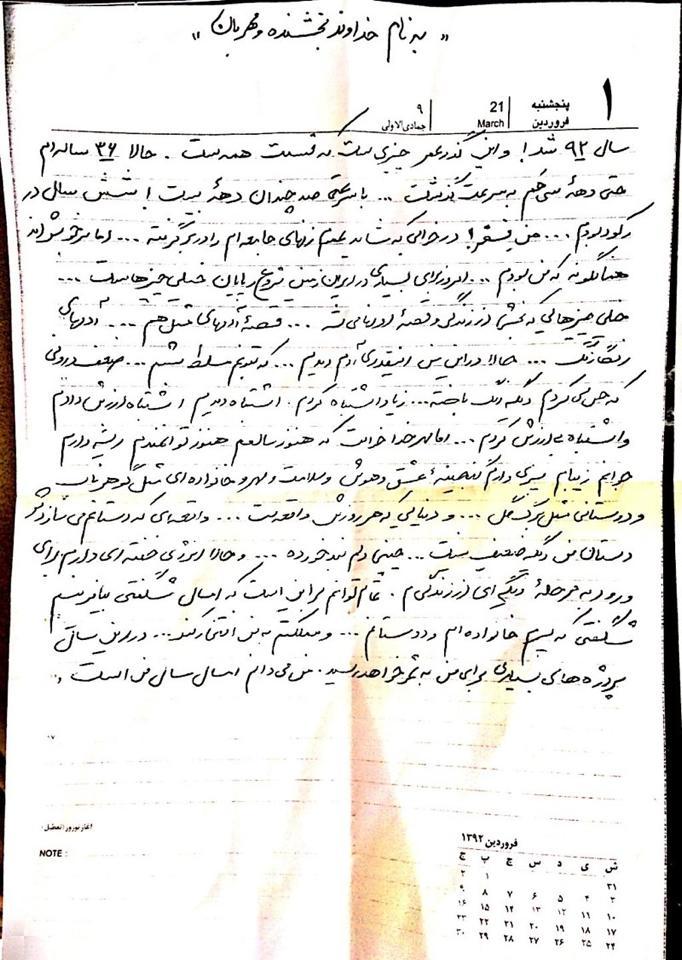 « به نام خداوند بخشنده و مهربان »
۱
پنجشنبه
فروردین
21
March
۹
جمادی‌الاولی
سال ۹۲ شد! و این گذر عمر چیزی ست که قسمت همه ست . حالا ۳۶ ساله ام
حتی دههٔ سی هم به سرعت گذشت ... با سرعتی صد چندان دههٔ بیست! شش سال در
رکود بودم ... من در خوابی که شاید نیمی از زنهای جامعه ام را در بر گرفته ... اما
همانگونه که من بودم ... امروز برای بسیاری در ایران زمین شروع و پایان خیلی چیزهاست ...
خیلی چیزهایی که بخشی از زندگی و قصهٔ ... قصهٔ آدمهای مثل هم ... آدمهای
رنگارنگ ... حالا در این سن آنقدری آدم دیدم ... که بتونم مسلط بشم ... ضعف درونی
که حس می کردم دیگه رنگ باخته ... زیاد اشتباه کردم . اشتباه دیدم اشتباه ارزش دادم
و اشتباه بی ارزش کردم ... اما مهر خداست که هنوز سالمم هنوز توانمندم ریشه دارم
جوانم زیبام پسری دارم گنجینهٔ عشق و هوش و سلامت و مهر و خانواده ای مثل گوهر ناب
و دوستانی مثل برگ گل ... و دنیایی که هر روزش واقعه ست ... واقعه ای که دستانم می سازدش
دستان من دیگه ضعیف نیست ... چینی دلم بند خورده ... و حالا انرژی خفته ای دارم برای
ورود به مرحلهٔ دیگه ای از زندگی م . تمام توانم بر این است که امسال شگفتی بیافرینم
شگفتی که پسرم خانواده ام و دوستانم ... و مملکتم به من افتخار کند ... در این سال
پروژه های بسیاری برای من به ثمر خواهد رسید . من می دانم امسال سال من است .
NOTE :
فروردین ۱۳۹۲
ش ی د س چ پ ج
۳۱ ۱ ۲
۳ ۴ ۵ ۶ ۷ ۸ ۹
۱۰ ۱۱ ۱۲ ۱۳ ۱۴ ۱۵ ۱۶
۱۷ ۱۸ ۱۹ ۲۰ ۲۱ ۲۲ ۲۳
۲۴ ۲۵ ۲۶ ۲۷ ۲۸ ۲۹ ۳۰